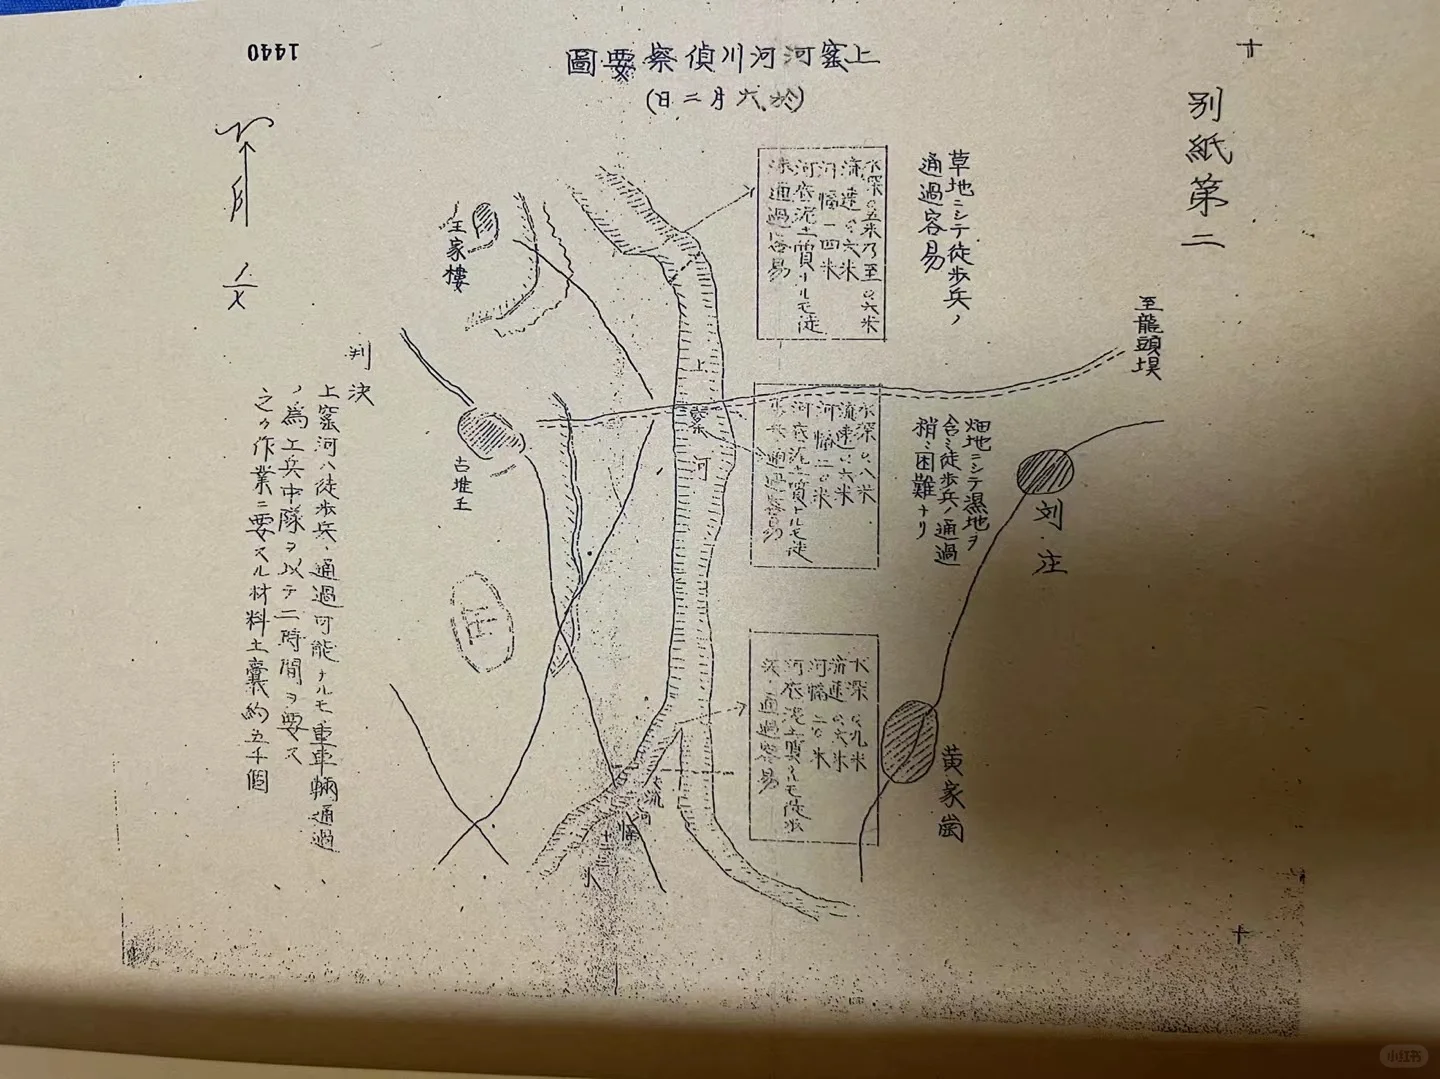 1440
上窰河河川偵察要圖
(於六月二日)
別紙第二
草地ニシテ徒歩兵ノ
通過容易
水深〇.五米乃至〇.六米
流速〇.六米
河幅一四米
河底泥土質ナルモ徒
渉通過容易
至龍頭埧
畑地ニシテ濕地ヲ
含ミ徒歩兵ノ通過
稍〻困難ナリ
水深〇.八米
流速〇.六米
河幅二〇米
河底泥土質ナルモ徒
歩兵通過容易
刘庄
水深〇.九米
流速〇.六米
河幅二〇米
河底泥土質ナルモ徒歩
通過容易
黄家崗
上窰河
王家樓
古堆王
支流河幅十三米
判決
上窰河ハ徒歩兵ノ通過可能ナルモ重車輛通過
ノ為工兵中隊ヲ以テ二時間ヲ要ス
之カ作業ニ要スル材料土嚢約五千個
小红书